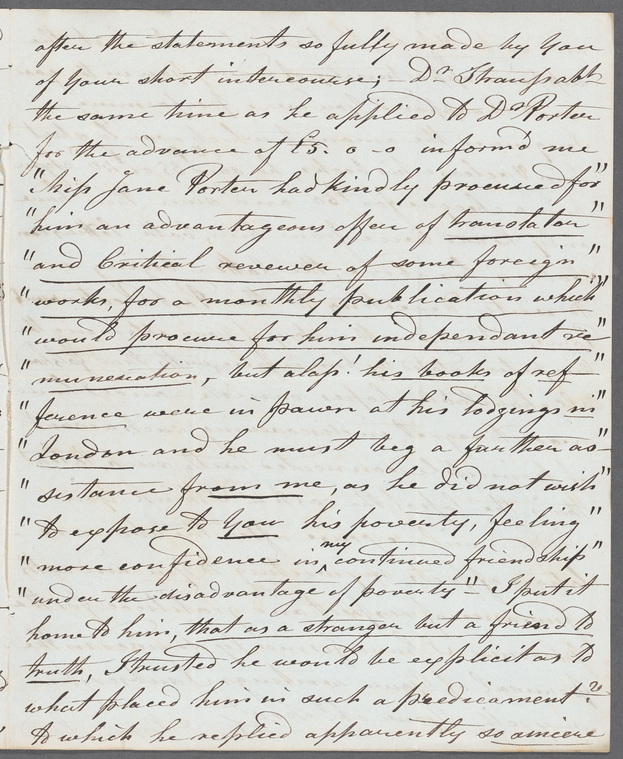 after the statements so fully made by You
of Your short intercourse; – Dr. Strauss abt
the same time as he applied to Dr Porter
for the advance of £5. 0 - 0 inform'd me
"Miss Jane Porter had kindly procured for"
"him an advantageous offer of translator"
"and Critical reveiwer of some foreign"
"works, for a monthly publication which"
"would procure for him independant re"
"muneration, but alass! his books of ref-"
"ference were in pawn at his lodgings in"
"London and he must beg a farther as-"
"sistance from me, as he did not wish"
"to expose to You his poverty, feeling"
"more confidence in my continued friendship"
"under the disadvantage of poverty" – I put it
home to him, that as a stranger but a friend to
truth, I trusted he would be explicit as to
what placed him in such a predicament?
to which he replied apparently so sincere